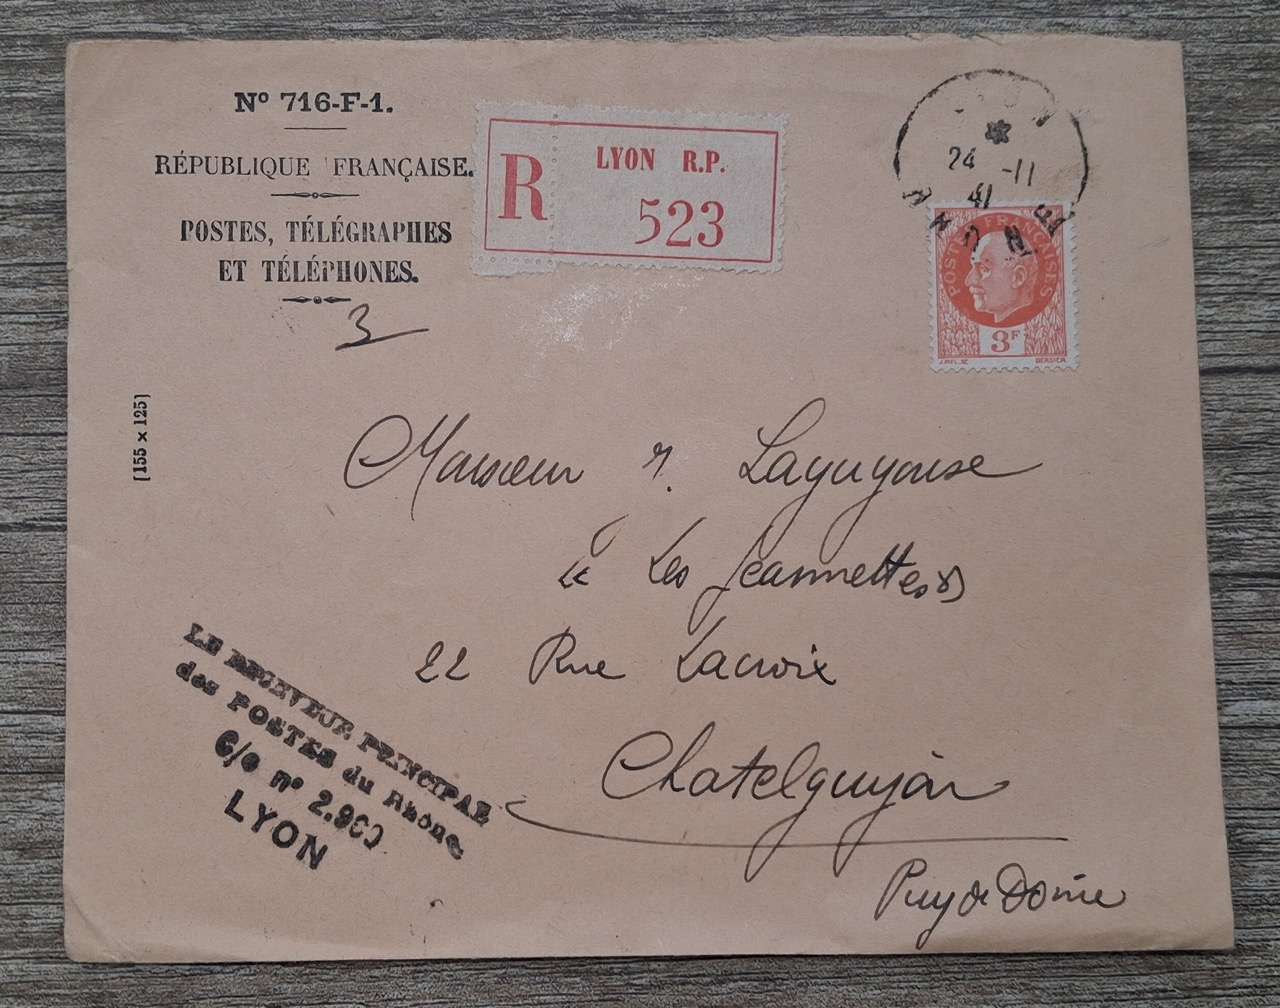 Nº 716-F-1.
RÉPUBLIQUE FRANÇAISE.
POSTES, TÉLÉGRAPHES
ET TÉLÉPHONES.
3
[155 x 125]
R
LYON R.P.
523
24 -11
41
POSTES FRANÇAISES
3F
BERSIER
Monsieur
à "Les Jeannettes"
22 Rue Lacroix
Chatelguyon
Puy de Dôme
LE RECEVEUR PRINCIPAL
des POSTES du Rhône
C/c nº
LYON